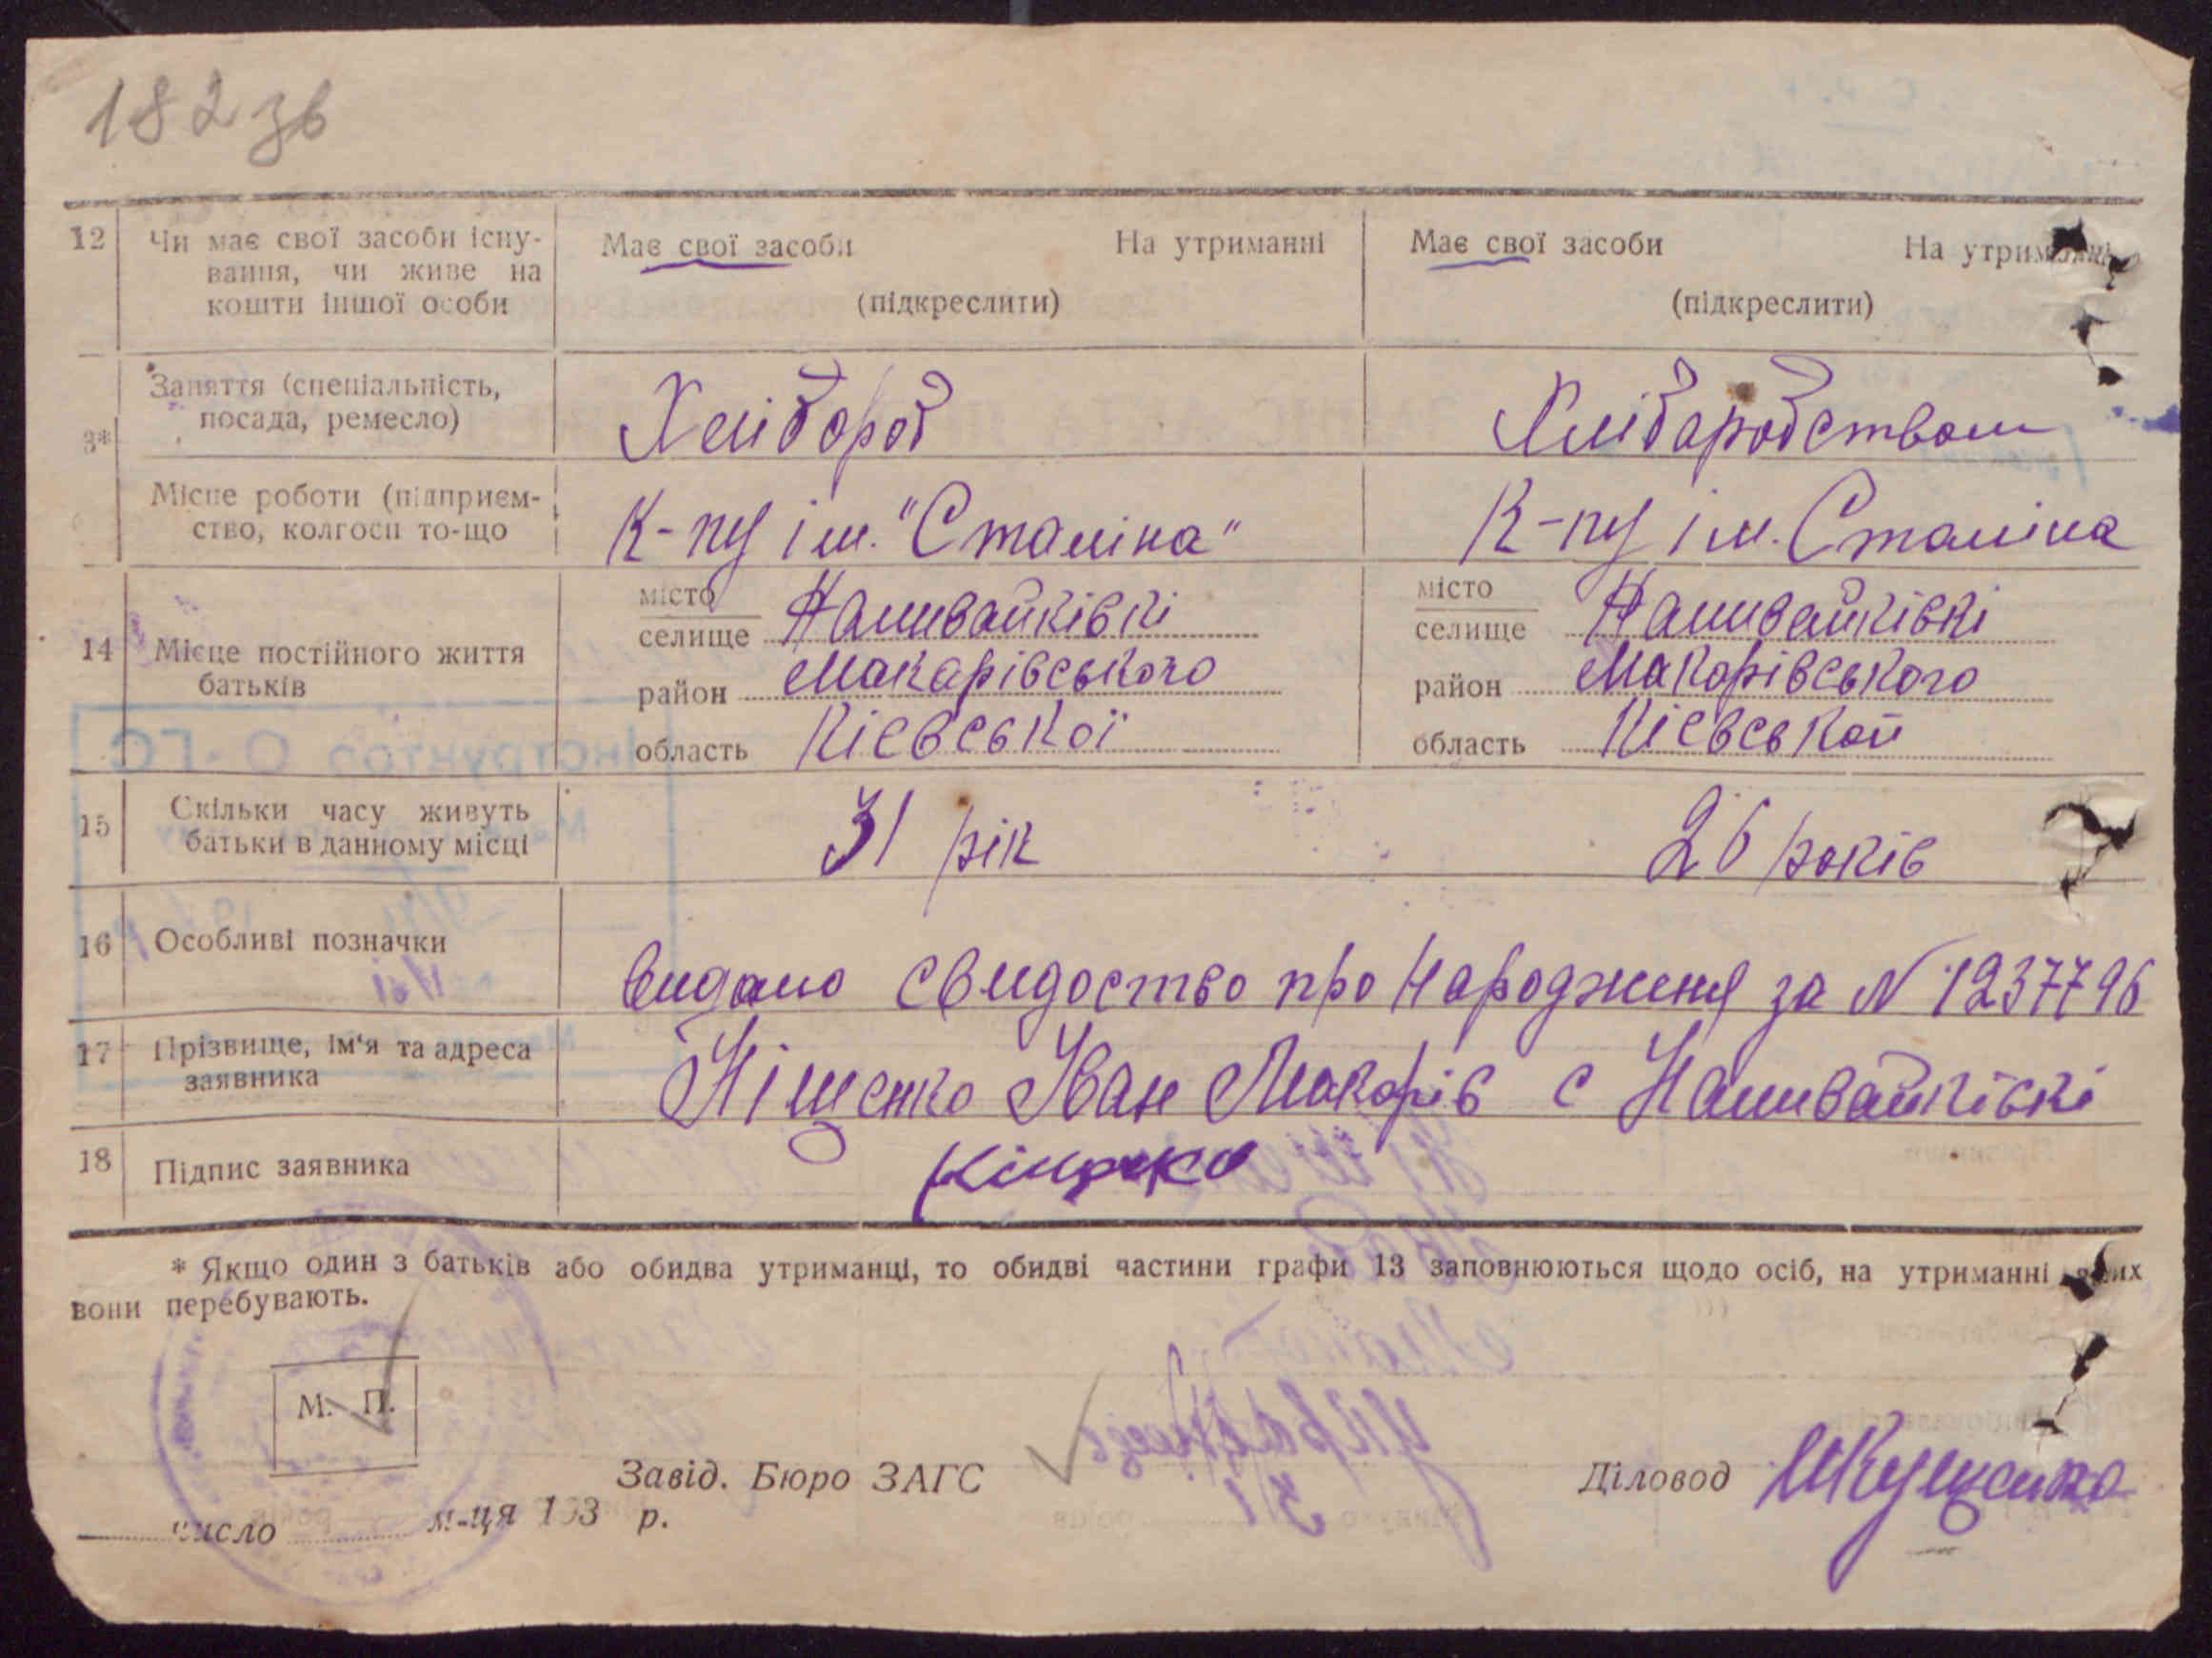 182 зв
12 Чи має свої засоби існу- Має свої засоби На утриманні Має свої засоби На утриманні
вання, чи живе на
кошти іншої особи (підкреслити) (підкреслити)
Заняття (спеціальність, Хлібороб Хліборобством
посада, ремесло)
3*
Місце роботи (підприєм- К-пу ім. "Сталіна" К-пу ім. Сталіна
ство, колгосп то-що
місто місто
селище Наливайківкі селище Наливайківкі
14 Місце постійного життя
батьків
район Макарівського район Макарівського
область Кієвської область Кієвськой
15 Скільки часу живуть 31 рік 26 років
батьки в данному місці
16 Особливі позначки
видано свидоство про народженя за N 1237796
17 Прізвище, ім'я та адреса
заявника Кіщенко Іван Макорів с Наливайківкі
18 Підпис заявника Кіщенко
* Якщо один з батьків або обидва утриманці, то обидві частини графи 13 заповнюються щодо осіб, на утриманні яких
вони перебувають.
М. П.
Завід. Бюро ЗАГС Діловод
число м-ця 193 р.